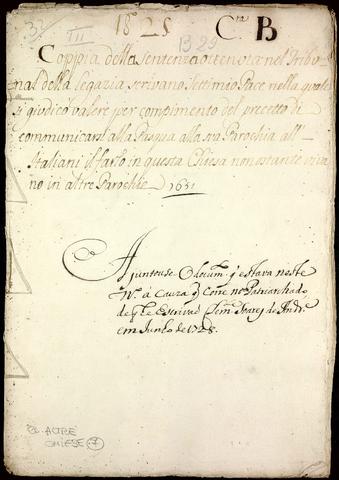 32 III 1825 Cra B
B29
Coppia della sentenza ottenota nel Tribu-
nal della Legazia scrivano Settimio Pace nella quale
si giudicò valere per compimento del precetto di
communicarsi alla Pasqua alla sua Parochia all'
Italiani il farlo in questa Chiesa non ostante viva
no in altre Parochie 1651
Ajuntouse O docum.to q̃ estava neste
N.o á Cauza q̃ Corre no Patriarchado
de q̃ he Escrivaõ Soares de Andr.e
em Junho de 1728
ALTRE
CHIESE 7